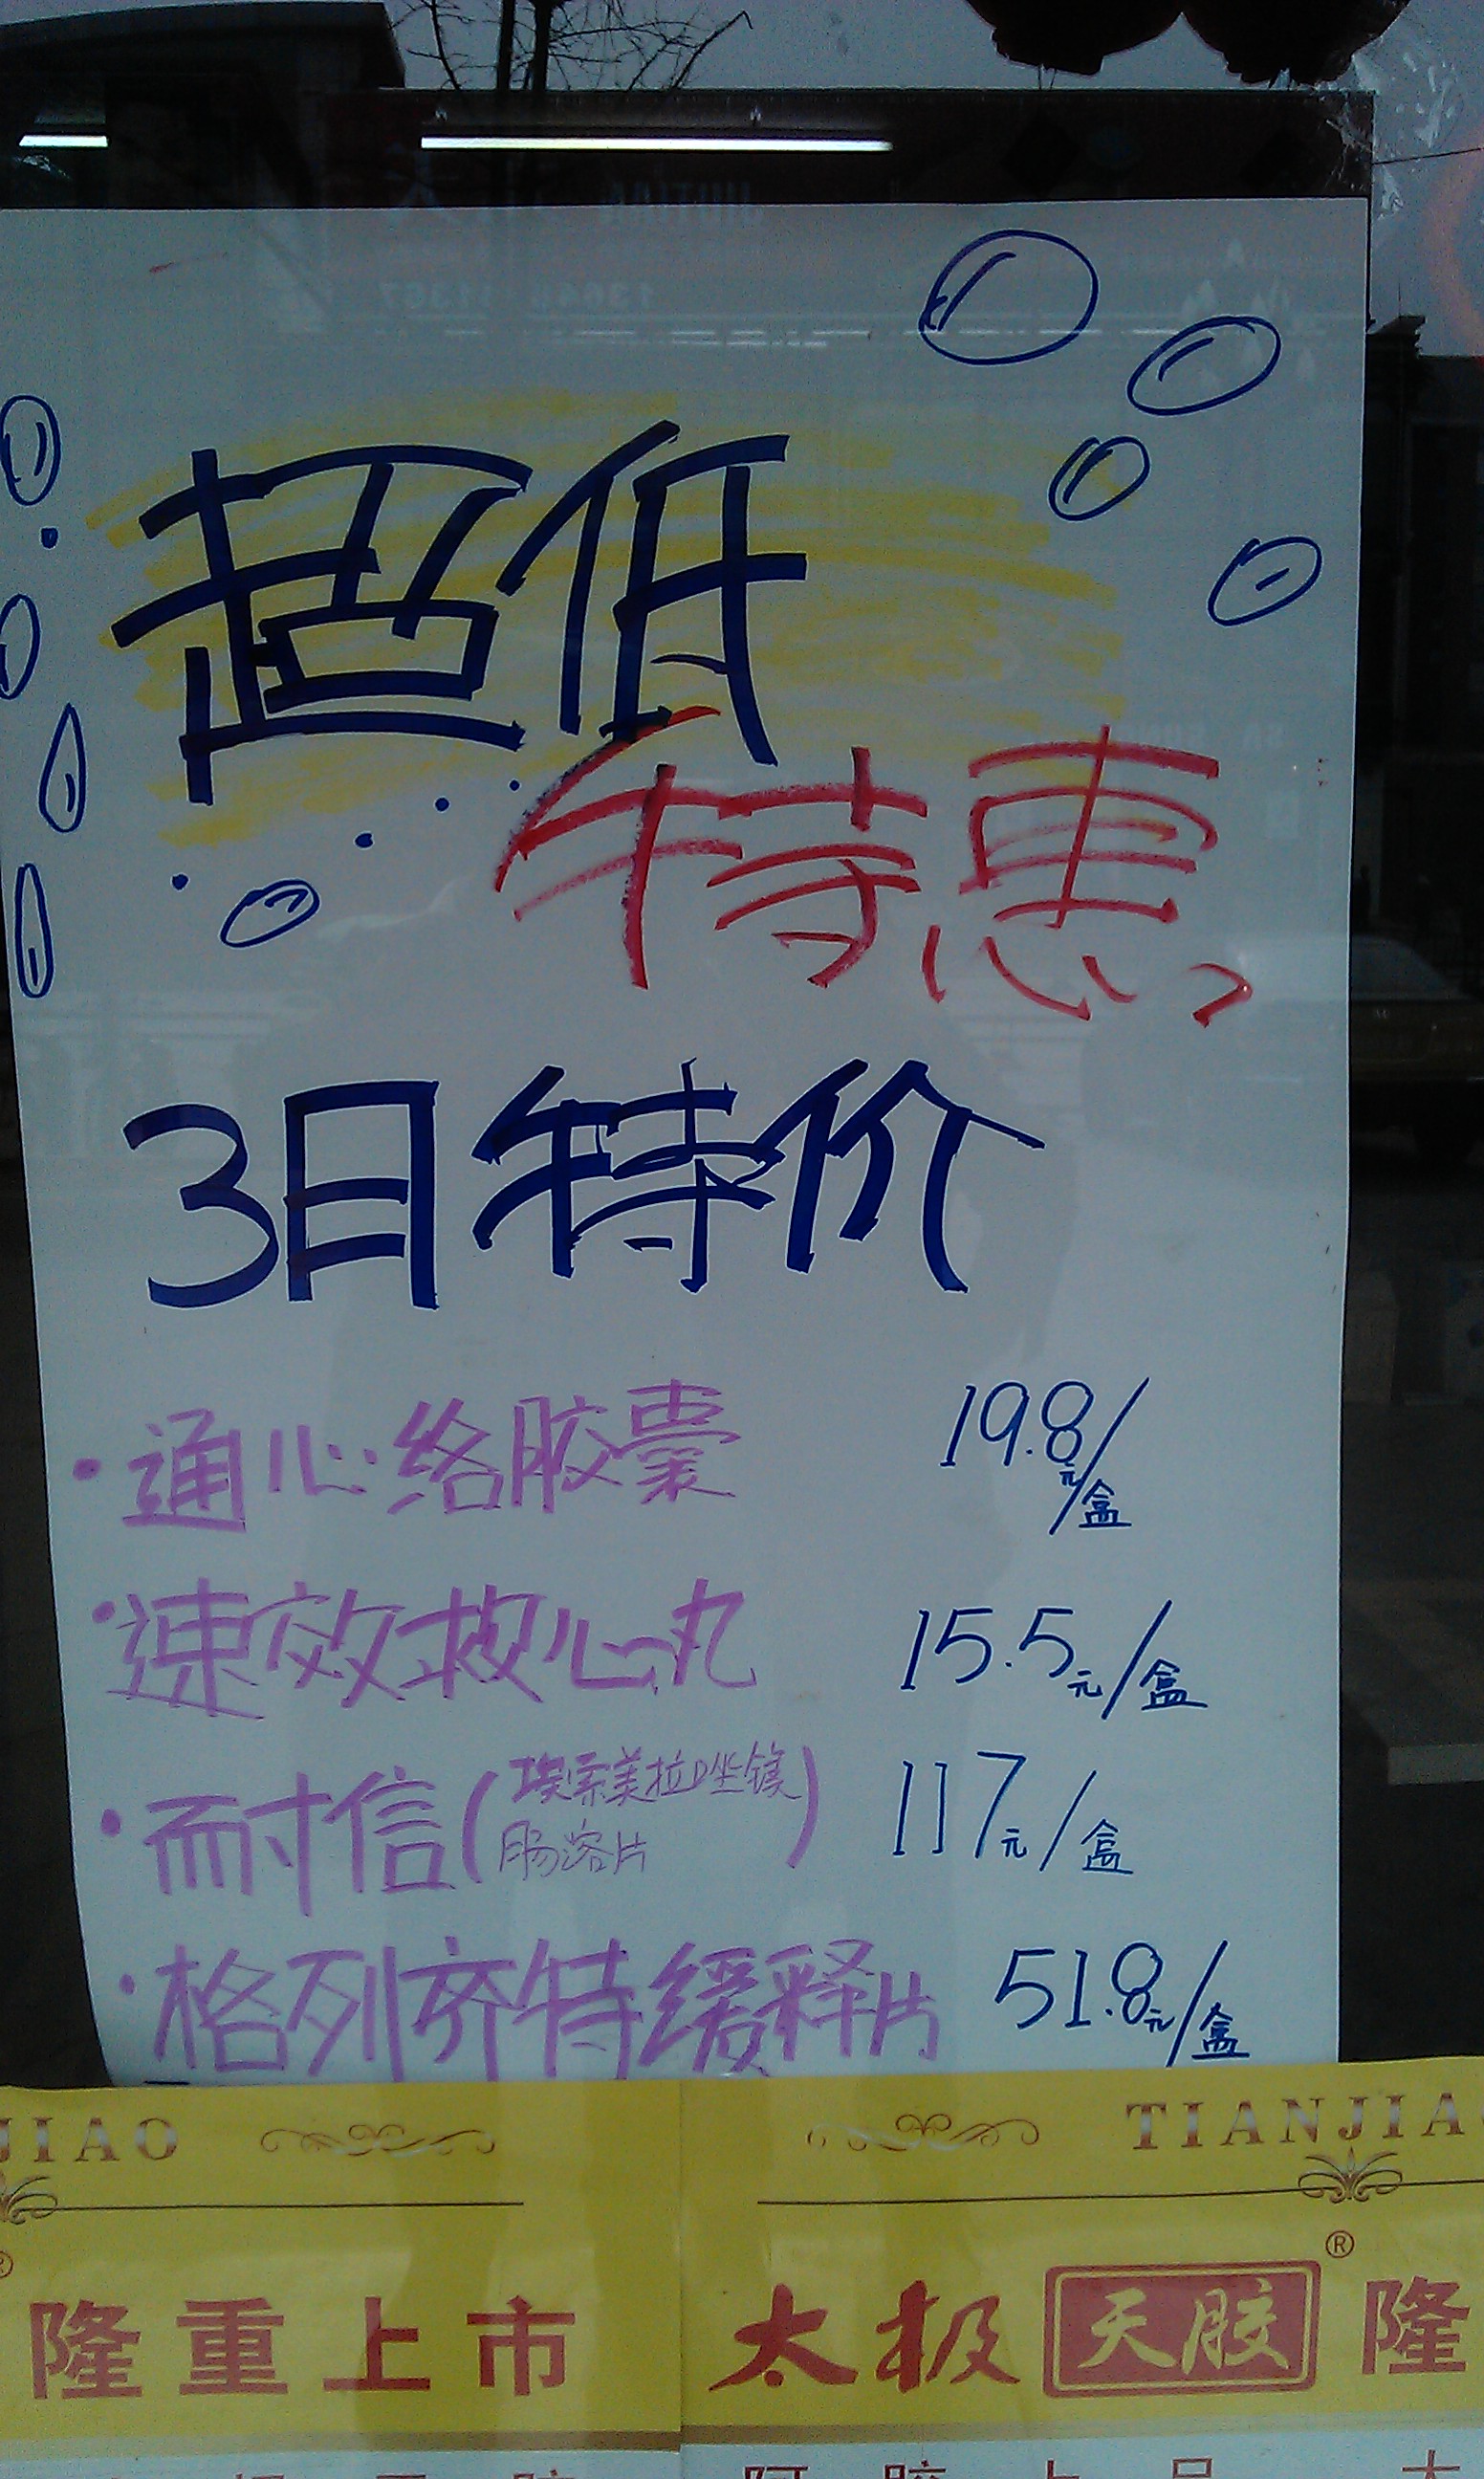 超低
特惠
3日特价
·通心络胶囊 19.8元/盒
·速效救心丸 15.5元/盒
·耐信(埃索美拉唑镁肠溶片) 117元/盒
·格列齐特缓释片 51.8元/盒
JIAO TIANJIA
隆重上市 太极天胶® 隆